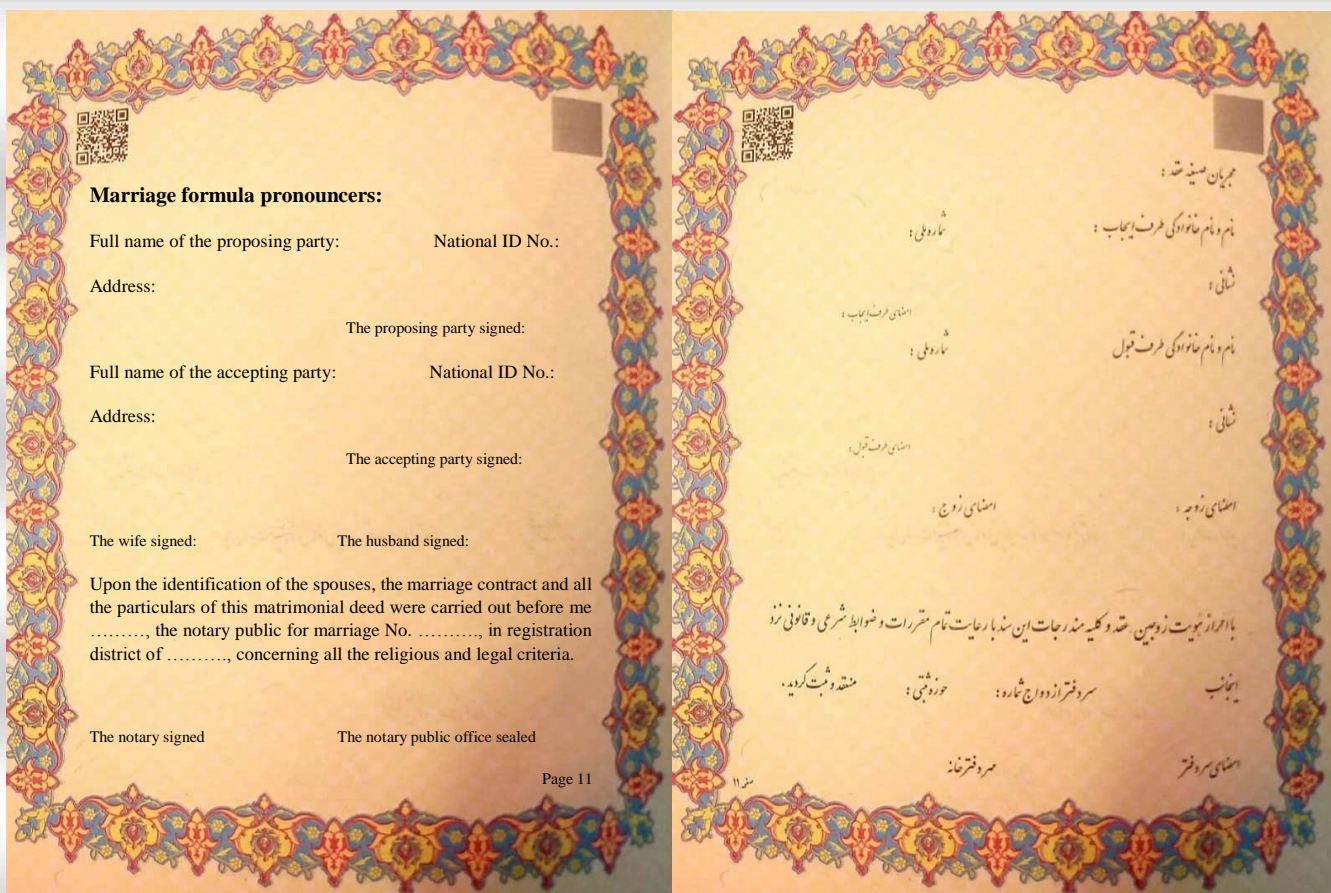 Marriage formula pronouncers:
Full name of the proposing party: National ID No.:
Address:
The proposing party signed:
Full name of the accepting party: National ID No.:
Address:
The accepting party signed:
The wife signed: The husband signed:
Upon the identification of the spouses, the marriage contract and all
the particulars of this matrimonial deed were carried out before me
………, the notary public for marriage No. ………., in registration
district of ………., concerning all the religious and legal criteria.
The notary signed The notary public office sealed
Page 11
مجریان صیغه عقد :
نام و نام خانوادگی طرف ایجاب : شماره ملی :
نشانی :
امضای طرف ایجاب :
نام و نام خانوادگی طرف قبول شماره ملی :
نشانی :
امضای طرف قبول :
امضای زوجه : امضای زوج :
با احراز هویت زوجین عقد و کلیه مندرجات این سند با رعایت تمام مقررات و ضوابط شرعی و قانونی نزد
اینجانب سردفتر ازدواج شماره : حوزه ثبتی : منعقد و ثبت گردید .
امضای سردفتر مهر دفترخانه
صفحه ۱۱